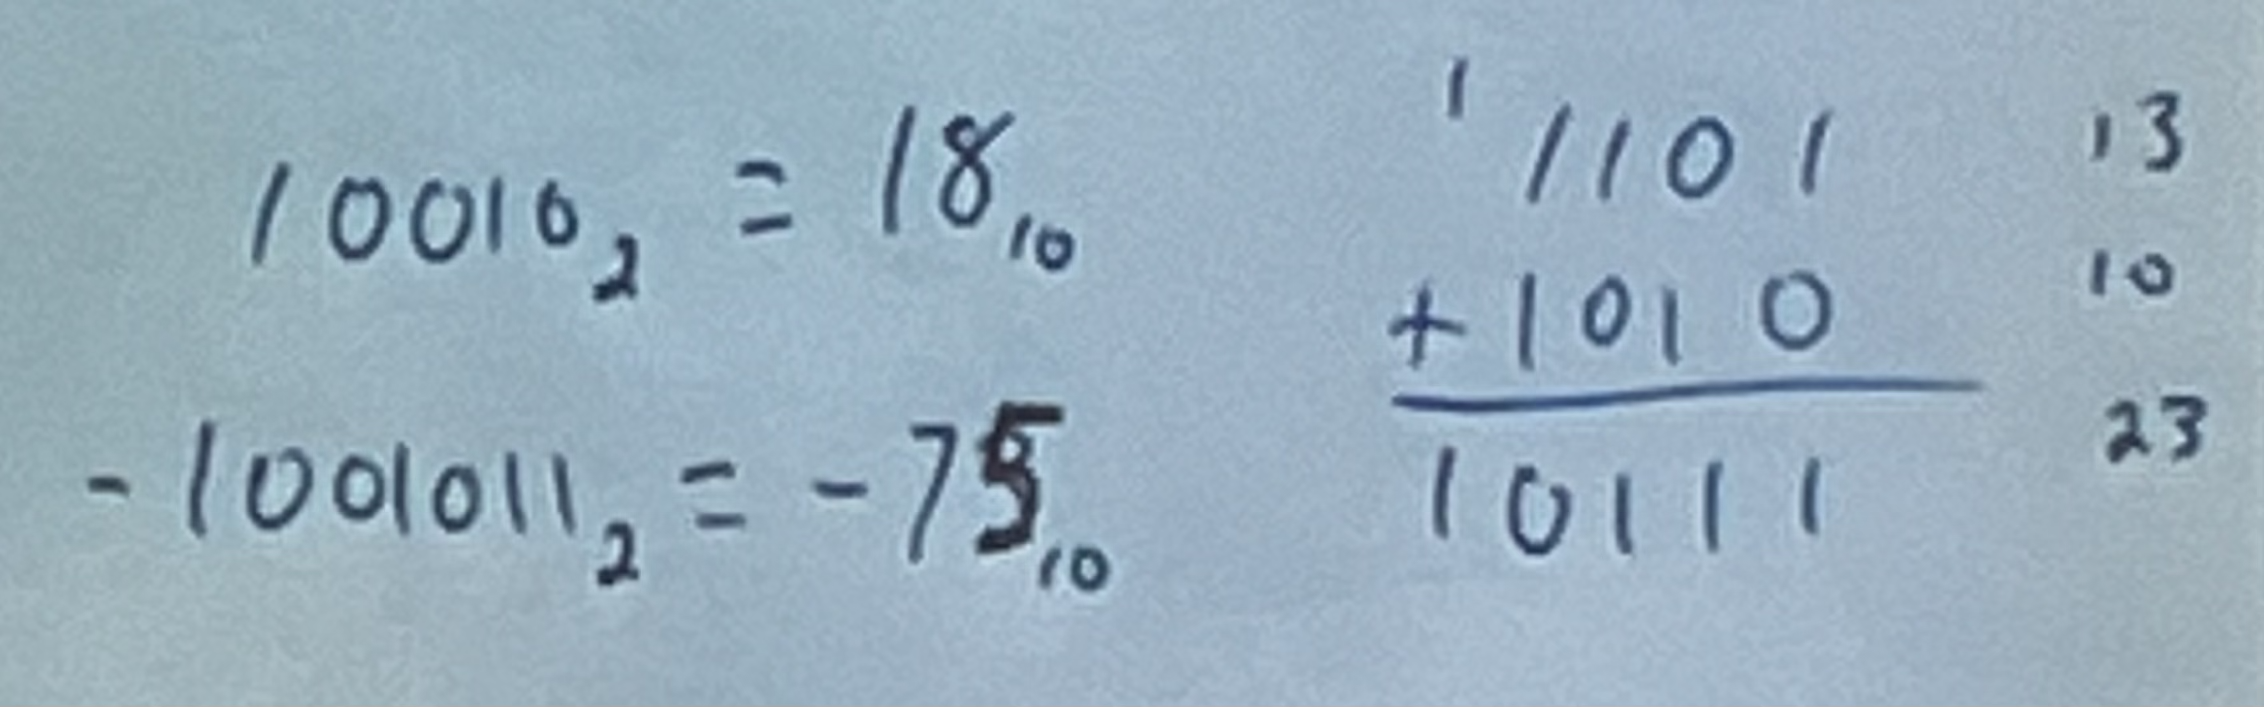 10010₂ = 18₁₀
-1001011₂ = -75₁₀
1
1101 13
+1010 10
10111 23